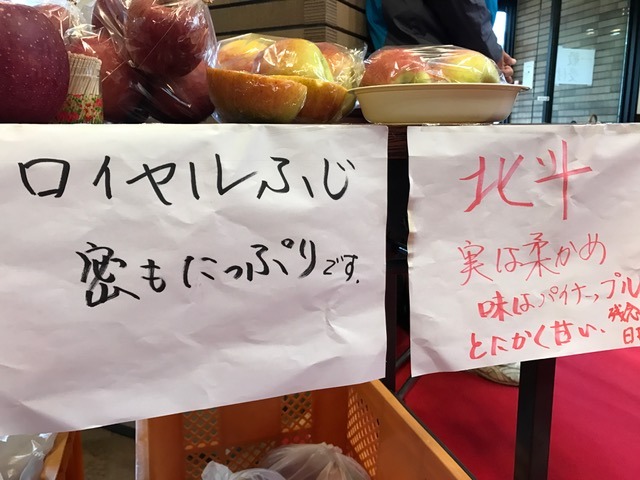 ロイヤルふじ
密もたっぷりです.
北斗
実は柔かめ
味はパイナップル
とにかく甘い.